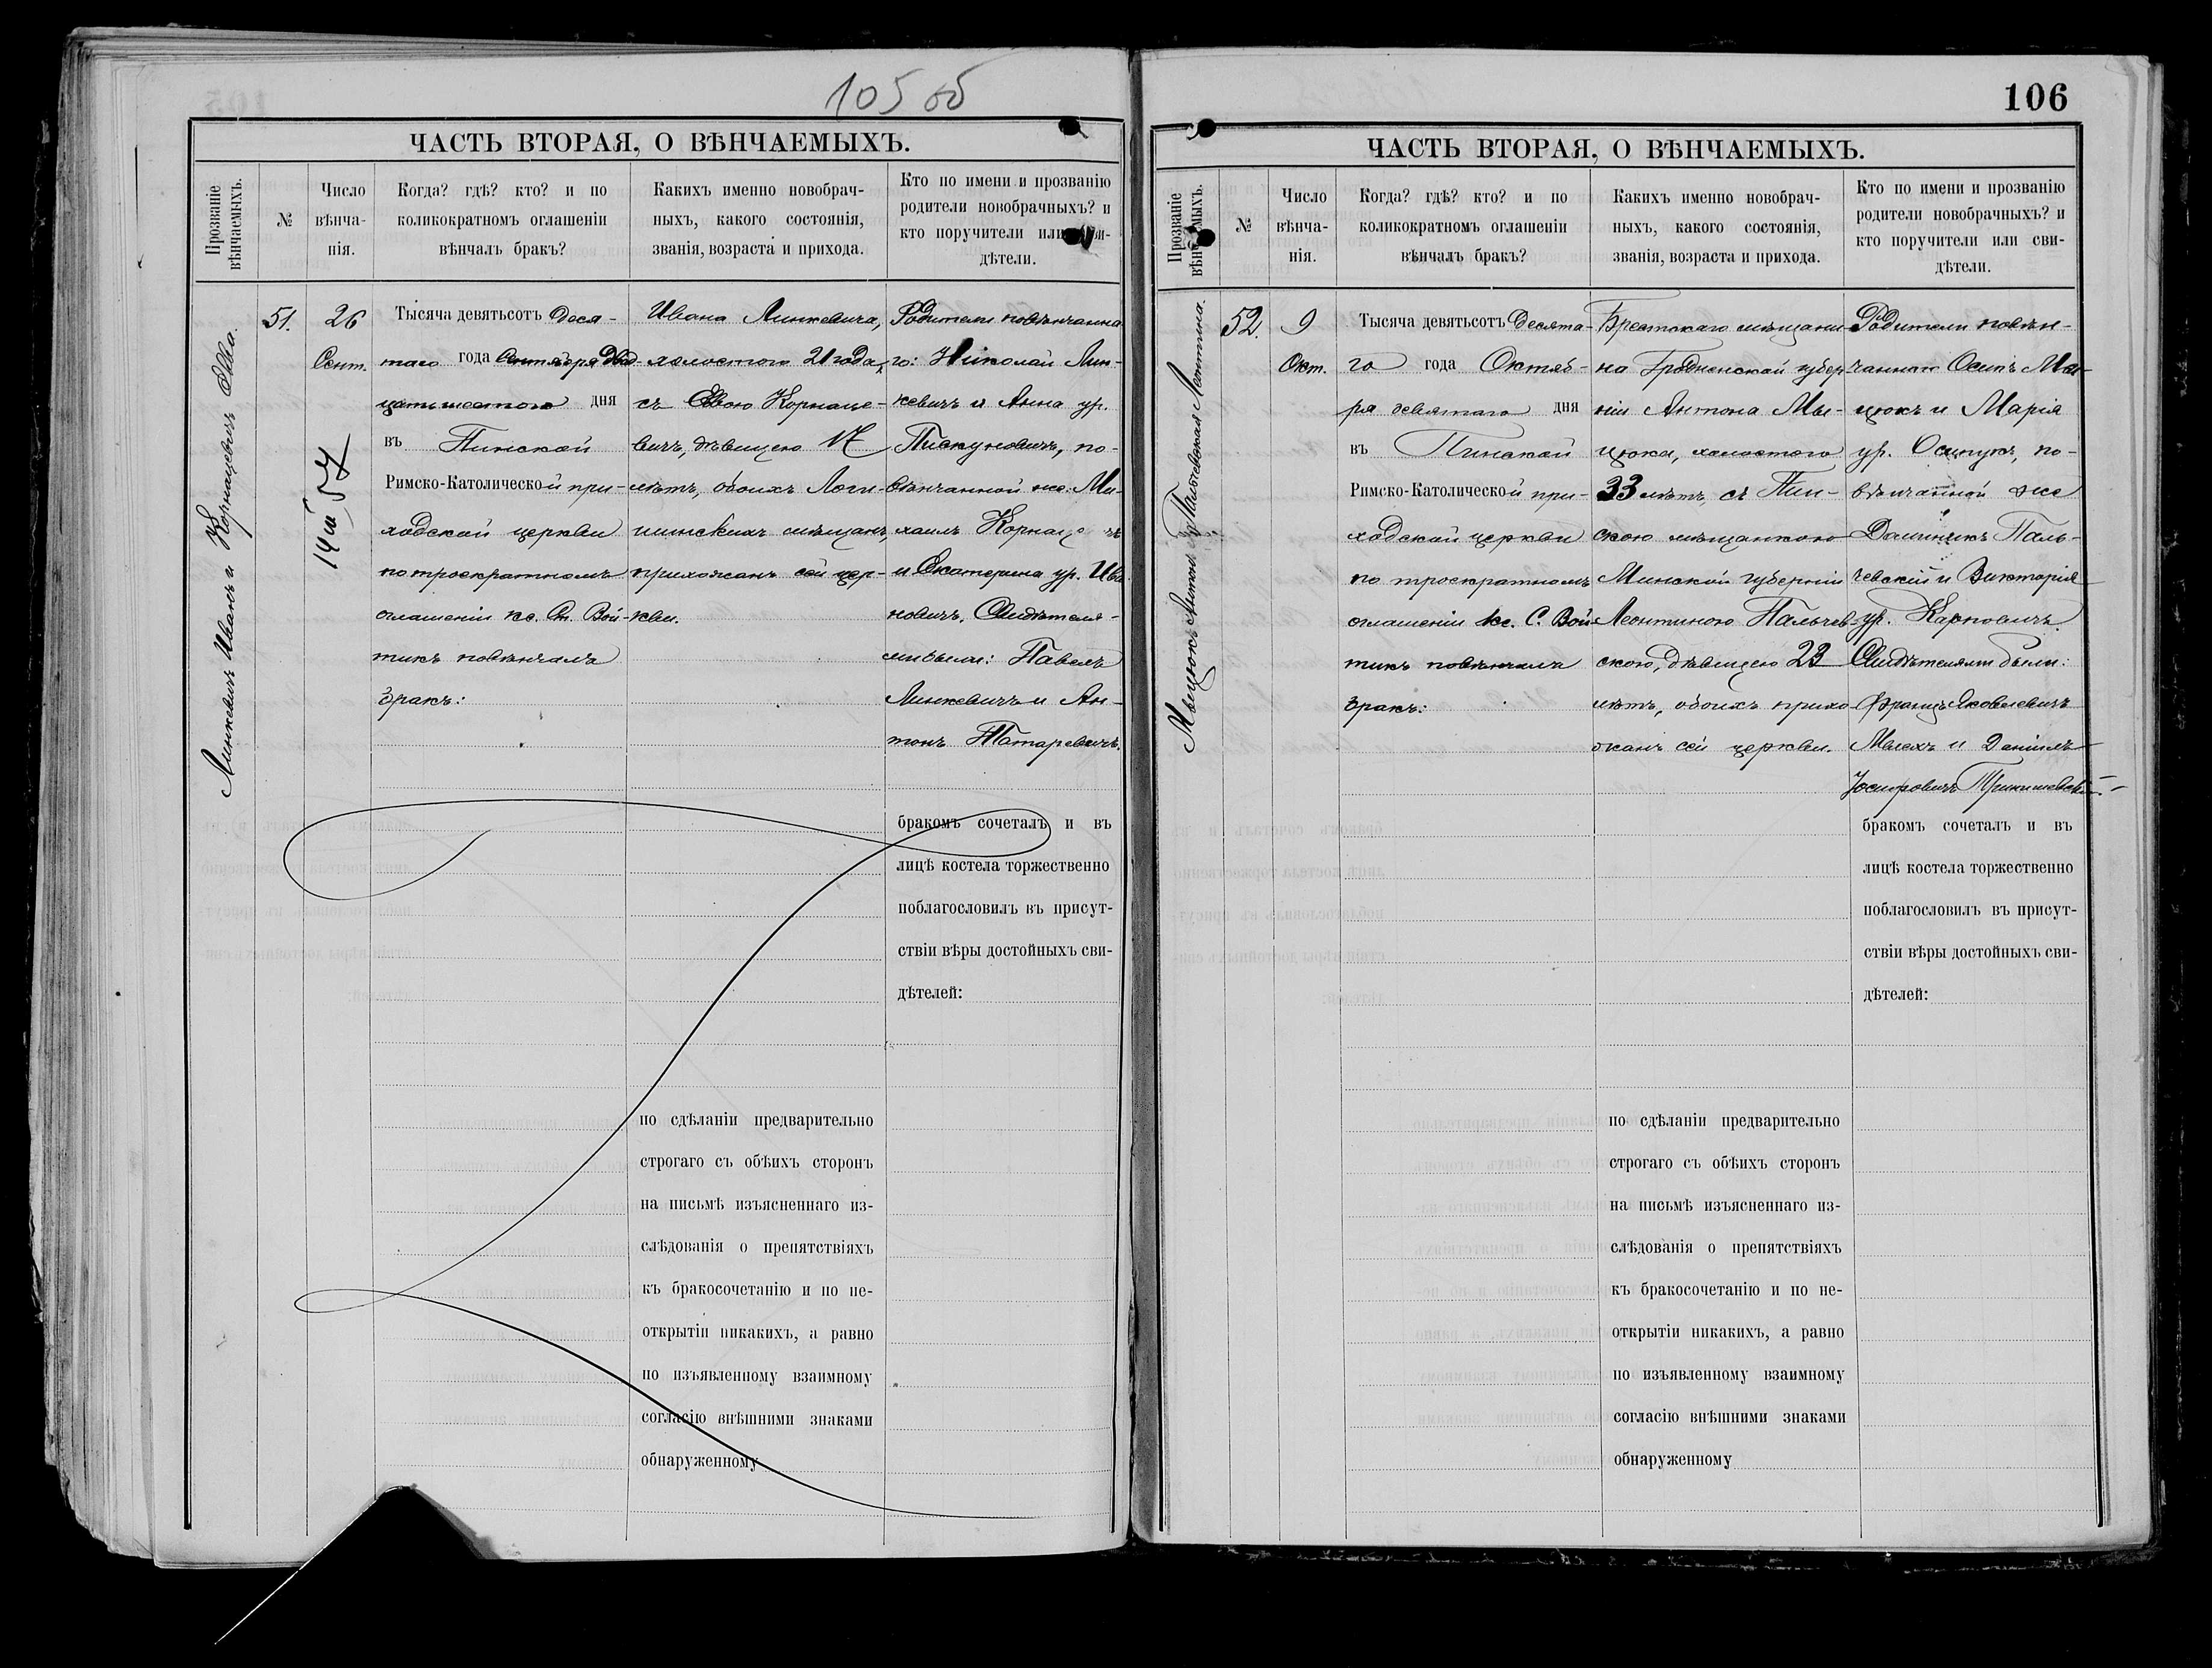 105 об
ЧАСТЬ ВТОРАЯ, О ВѢНЧАЕМЫХЪ.
Прозваніе
вѣнчаемыхъ.
№
Число
вѣнча-
нія.
Когда? гдѣ? кто? и по
коликократномъ оглашеніи
вѣнчалъ бракъ?
Какихъ именно новобрач-
ныхъ, какого состоянія,
званія, возраста и прихода.
Кто по имени и прозванію
родители новобрачныхъ? и
кто поручители или
дѣтели.
Линкевичъ Иванъ и Корнацевичъ Эва.
51.
26
Сент.
14 ш 57
Тысяча девятьсотъ Деся-
таго года Сентября Двад-
цать шестого дня
въ Пинской
Римско-Католической при-
ходской церкви
по троекратномъ
оглашеніи кс. Ст. Вой-
тикъ повѣнчалъ
бракъ:
Ивана Линкевича,
холостого 21 года,
съ Эвою Корнаце-
вичъ, дѣвицею 17
лѣтъ, обоихъ Логи-
шинскихъ мѣщанъ,
прихожанъ сей цер-
кви.
Родители повѣнчанна
го: Николай Лин-
кевичъ и Анна ур.
Пискуновичъ, по-
вѣнчанной же: Ми-
хаилъ
и Екатерина ур. Ива
новичъ. Свидѣтеля-
ми были: Павелъ
Линкевичъ и Ан-
тонъ Татаревичъ.
бракомъ сочеталъ и въ
лицѣ костела торжественно
поблагословилъ въ присут-
ствіи вѣры достойныхъ сви-
дѣтелей:
по сдѣланіи предварительно
строгаго съ обѣихъ сторонъ
на письмѣ изъясненнаго из-
слѣдованія о препятствіяхъ
къ бракосочетанію и по не-
открытіи никакихъ, а равно
по изъявленному взаимному
согласію внѣшними знаками
обнаруженному
106
ЧАСТЬ ВТОРАЯ, О ВѢНЧАЕМЫХЪ.
Прозваніе
№
Число
вѣнча-
нія.
Когда? гдѣ? кто? и по
коликократномъ оглашеніи
вѣнчалъ бракъ?
Какихъ именно новобрач-
ныхъ, какого состоянія,
званія, возраста и прихода.
Кто по имени и прозванію
родители новобрачныхъ? и
кто поручители или сви-
дѣтели.
Мыцюкъ Антонъ Пальчевская Леонтина.
52.
9
Окт.
Тысяча девятьсотъ Десята-
го года Октяб-
ря девятаго дня
въ Пинской
Римско-Католической при-
ходской церкви
по троекратномъ
оглашеніи кс. С. Вой-
тикъ повѣнчалъ
бракъ:
Брестскаго мѣщани-
на Гродненской губер
ніи Антона Мы-
цюка, холостого
33 лѣтъ, съ Пин-
скою мѣщанкою
Минской губерніи
Леонтиною Пальчев-
скою, дѣвицею 23
лѣтъ, обоихъ прихо-
жанъ сей церкви.
Родители повѣн-
чаннаго Осипъ Мы-
цюкъ и Марія
ур. Осипукъ, по-
вѣнчанной же
Доминикъ Паль-
чевскій и Викторія
ур. Карповичъ.
Свидѣтелями были:
Францъ Яковлевичъ
Мелехъ и Даніилъ
Іосифовичъ
бракомъ сочеталъ и въ
лицѣ костела торжественно
поблагословилъ въ присут-
ствіи вѣры достойныхъ сви-
дѣтелей:
по сдѣланіи предварительно
строгаго съ обѣихъ сторонъ
на письмѣ изъясненнаго из-
слѣдованія о препятствіяхъ
къ бракосочетанію и по не-
открытіи никакихъ, а равно
по изъявленному взаимному
согласію внѣшними знаками
обнаруженному